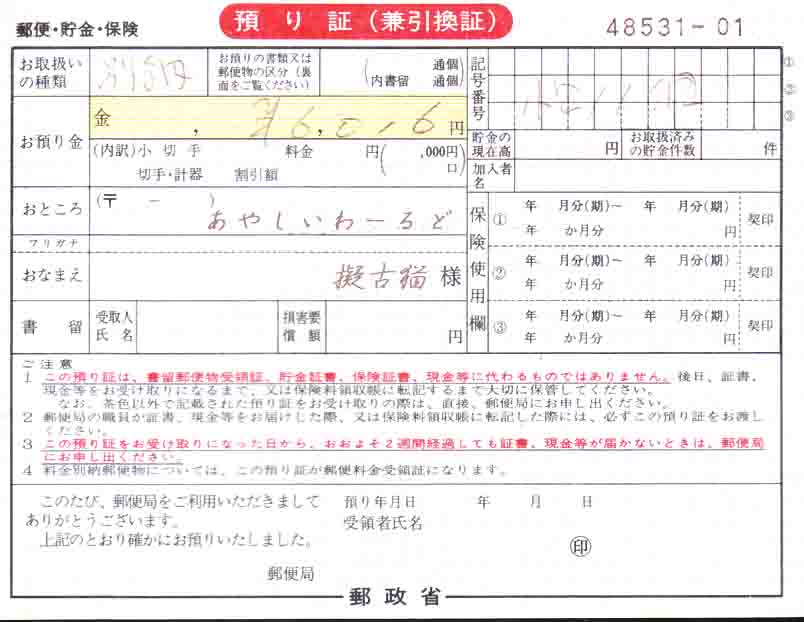 郵便・貯金・保険
預り証(兼引換証)
48531-01
お取扱いの種類
お預りの書類又は郵便物の区分(裏面をご覧ください)
( 通個)
(内書留 通個)
記号番号
①
②
③
お預り金
金 , ¥6,016円
(内訳)小切手 料金 円( ,000円 口)
切手・計器 割引額
貯金の現在高 円
お取扱済みの貯金件数 件
加入者名
おところ
(〒 - )
あやしいわーるど
フリガナ
おなまえ
擬古猫 様
書留
受取人氏名
損害要償額 円
保険使用欄
① 年 月分(期)~ 年 月分(期) 契印
年 か月分 円
② 年 月分(期)~ 年 月分(期) 契印
年 か月分 円
③ 年 月分(期)~ 年 月分(期) 契印
年 か月分 円
ご注意
1 この預り証は、書留郵便物受領証、貯金証書、保険証書、現金等に代わるものではありません。後日、証書、
現金等をお受け取りになるまで、又は保険料領収帳に転記するまで大切に保管してください。
なお、茶色以外で記載された預り証をお受け取りの際は、直接、郵便局にお申し出ください。
2 郵便局の職員が証書、現金等をお届けした際、又は保険料領収帳に転記した際には、必ずこの預り証をお渡し
ください。
3 この預り証をお受け取りになった日から、おおよそ2週間経過しても証書、現金等が届かないときは、郵便局
にお申し出ください。
4 料金別納郵便物については、この預り証が郵便料金受領証になります。
このたび、郵便局をご利用いただきまして
ありがとうございます。
上記のとおり確かにお預りいたしました。
郵便局
預り年月日 年 月 日
受領者氏名
印
郵政省